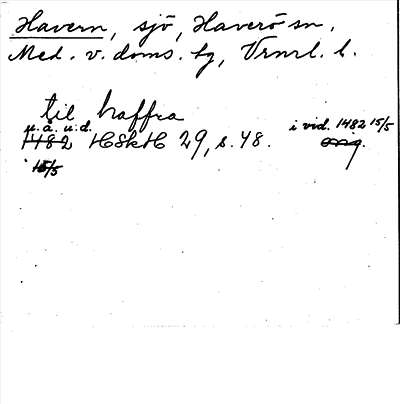 Havern, sjö, Haverö sn,
Med. v. doms. hg, Vrnrl. l.
til haffra
u.å. u.d. i vid. 1482 15/5
1482 HSkH 29, s. 48. orig.
15/5